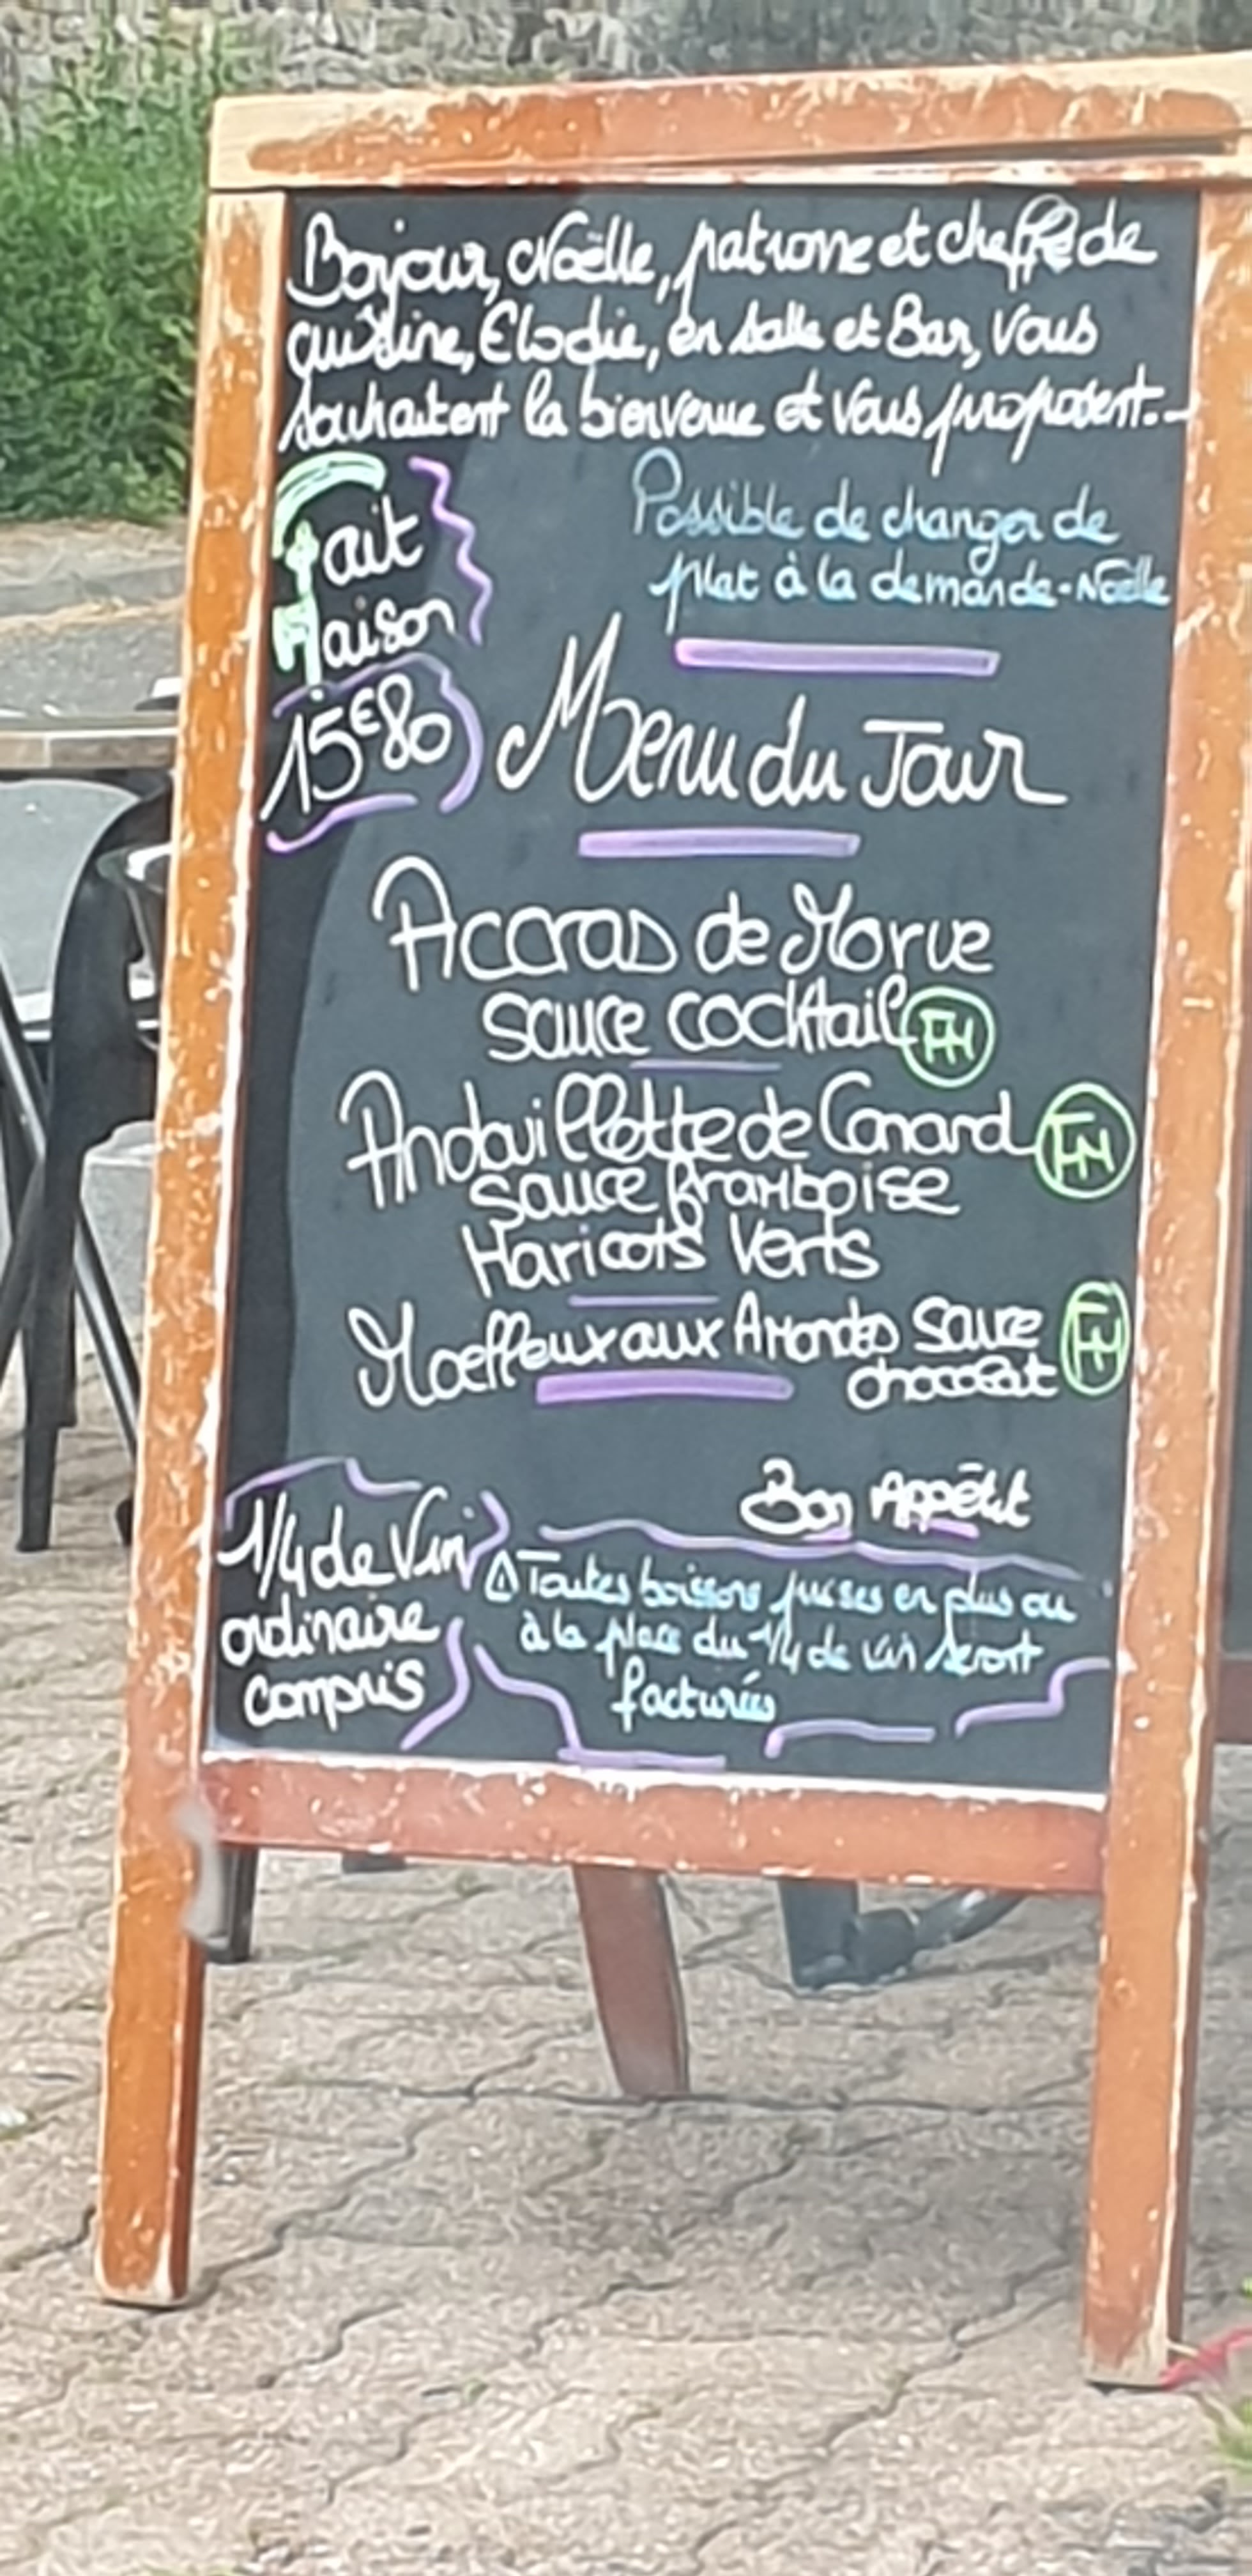 Bonjour, Noëlle, patronne et cheffe de
cuisine, Elodie, en salle et Bar, vous
souhaitent la bienvenue et vous proposent...
Fait
Maison
Possible de changer de
plat à la demande-Noëlle
15€80
Menu du Jour
Accras de Morue
sauce cocktail FM
Andouillette de Canard FM
sauce framboise
Haricots Verts
Moelleux aux Amandes sauce FM
chocolat
Bon Appétit
1/4 de Vin
ordinaire
compris
⚠ Toutes boissons prises en plus ou
à la place du 1/4 de vin seront
facturées